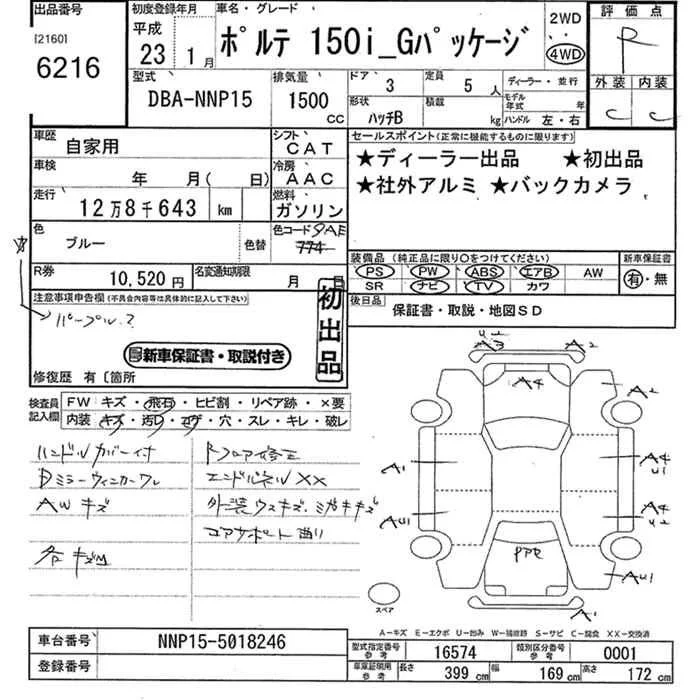 出品番号 初度登録年月 車名・グレード 2WD 評価点
[2160] 平成 ポルテ 150i_Gパッケージ ・・ R
6216 23 1月 4WD
型式 排気量 ドア 3 定員 5人 ディーラー・並行 外装 内装
DBA-NNP15 1500 CC 形状 ハッチB 積載 kg モデル年式 年 C C
ハンドル 左・右
車歴 自家用 シフト CAT セールスポイント(正常に機能するものに限ります)
車検 年 月( 日) 冷房 AAC ★ディーラー出品 ★初出品
走行 12万8千643 km 燃料 ガソリン ★社外アルミ ★バックカメラ
色 ブルー 色替 色コード 9AE
774
装備品(純正品に限り○をつけてください) 新車保証書
PS PW ABS エアB AW 有・無
SR ナビ TV カワ
R券 10,520円 名変通知期限 月 日
後日品 保証書・取説・地図SD
注意事項申告欄(不具合内容等は具体的に記入して下さい)
パープル?
初出品
新車保証書・取説付き
修復歴 有〔箇所
検査員記入欄 FW キズ・飛石・ヒビ割・リペア跡・×要
内装 キズ・汚れ・コゲ・穴・スレ・キレ・破レ
ハンドルカバー付
Dミラーウィンカーワレ
AWキズ
各キズ凹
Rフロア修正
エンドパネルXX
外装ウスキズ・ミガキキズ
コアサポート曲り
A3 A2
A4 A2
A1 A4
U1
AU1 A4
U2
PPR AU1
A1
スペア
A-キズ E-エクボ U-凹み W-補修跡 S-サビ C-腐食 XX-交換済
車台番号 NNP15-5018246
登録番号
型式指定番号 参考 16574 類別区分番号 参考 0001
車庫証明用 参考 長さ 399 cm 幅 169 cm 高さ 172 cm